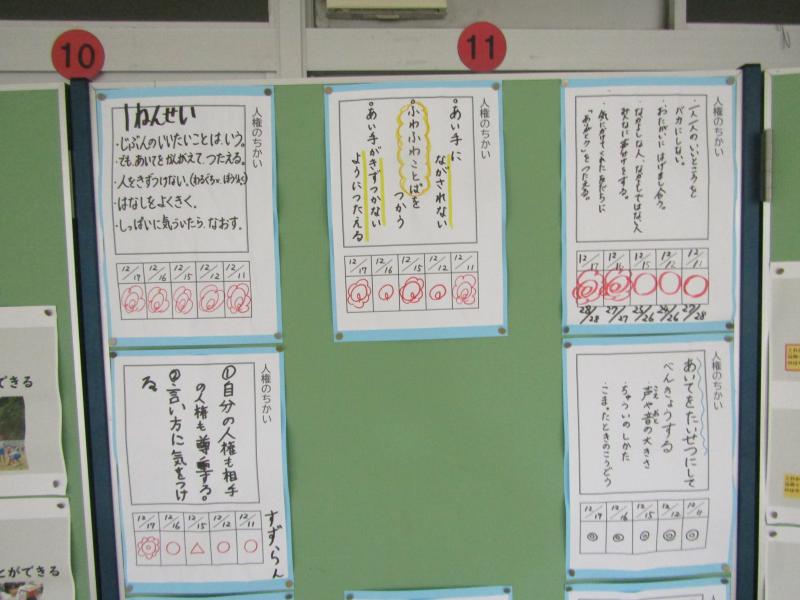 10
11
人権のちかい
1ねんせい
・じぶんのいいたいことは、いう。
でも、あいてをかんがえて、つたえる。
・人をきずつけない。
・はなしをよくきく。
・しっぱいに気づいたら、なおす。
12/17
12/16
12/15
12/12
12/11
人権のちかい
。あい手に
ながされない
。ふわふわことばを
つかう
。あい手がきずつかない
ようにつたえる
12/17
12/16
12/15
12/12
12/11
人権のちかい
・一人一人のいいところを
バカにしない。
・おたがいにはげまし合う。
・なかよしな人、なかよしではない人
みんなに
をする。
・気にかけてくれた友だちに
「ありがとう」をつたえる。
12/17
12/16
12/15
12/12
12/11
28/28
27/27
25/26
26/26
27/28
人権のちかい
①自分の人権も相手
の人権も尊重する。
②言い方に気をつけ
る。
すずらん
12/17
12/16
12/15
12/12
12/11
人権のちかい
あいてをたいせつにして
べんきょうする
・声や音の大きさ
こえ
おと
・ちゅういのしかた
・こまったときのこうどう
12/17
12/16
12/15
12/12
12/11
できる
とができる